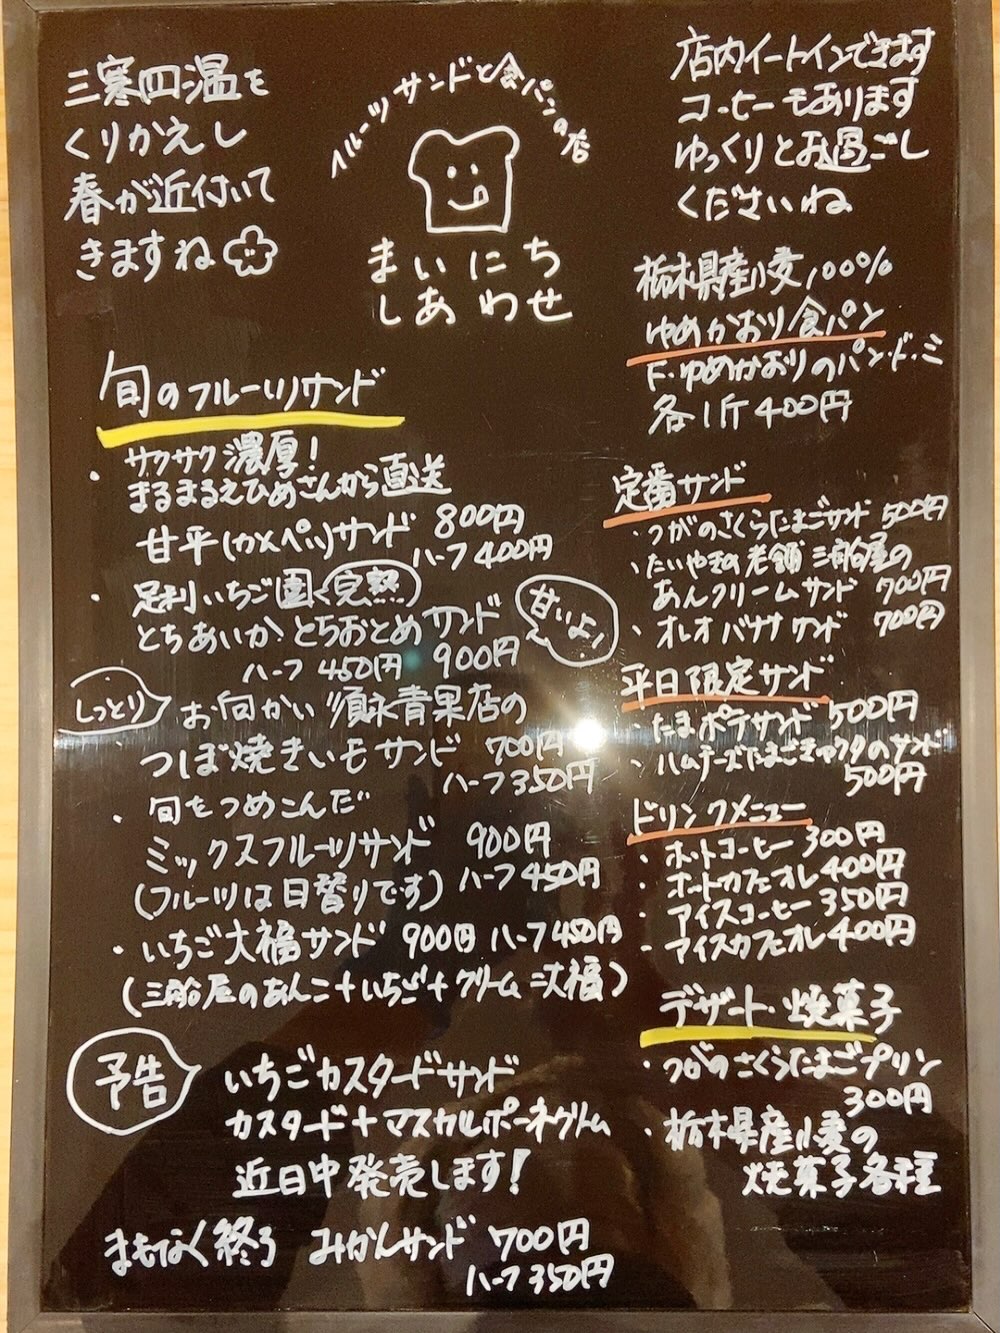 三寒四温を
くりかえし
春が近付いて
きますね
フルーツサンドと食パンの店
まいにち
しあわせ
店内イートインできます
コーヒーもあります
ゆっくりとお過ごし
くださいね
栃木県産小麦100%
ゆめかおり食パン
ゆめかおりのパン・ド・ミ
各1斤400円
旬のフルーツサンド
・サクサク濃厚!
まるまるえひめさんから直送
甘平(かんぺい)サンド 800円
ハーフ400円
・足利いちご園 完熟
とちあいか とちおとめサンド
ハーフ 450円 900円
甘いよ!
しっとり
お向かい須永青果店の
・つぼ焼きいもサンド 700円
ハーフ350円
・旬をつめこんだ
ミックスフルーツサンド 900円
(フルーツは日替りです) ハーフ450円
・いちご大福サンド 900円 ハーフ450円
(三船屋のあんこ+いちご+クリーム=大福)
予告
いちごカスタードサンド
カスタード+マスカルポーネクリーム
近日中発売します!
まもなく終了 みかんサンド 700円
ハーフ350円
定番サンド
・つがのさくらたまごサンド 500円
・たいやきの老舗 三船屋の
あんクリームサンド 700円
・オレオバナナサンド 700円
平日限定サンド
・たまポテサンド 500円
・ハムチーズたまごキャベツのサンド
500円
ドリンクメニュー
・ホットコーヒー 300円
・ホットカフェオレ 400円
・アイスコーヒー 350円
・アイスカフェオレ 400円
デザート・焼菓子
・つがのさくらたまごプリン
300円
・栃木県産小麦の
焼菓子各種